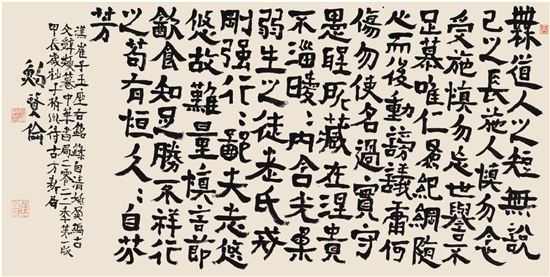 無道人之短無說
己之長施人慎勿念
受施慎勿忘世譽不
足慕唯仁為紀綱隱
心而後動謗議庸何
傷勿使名過實守
愚聖所藏在涅貴
不淄曖〻內含光柔
弱生之徒老氏戒
剛強行〻鄙夫志悠
悠故難量慎言節
飲食知足勝不祥行
之苟有恒久〻自芬
芳
漢崔子玉座右銘錄自清姚鼐編古
文辭類纂中華書局二零二二年第一版
甲辰歲杪于杭州待古方新居
鮑賢倫